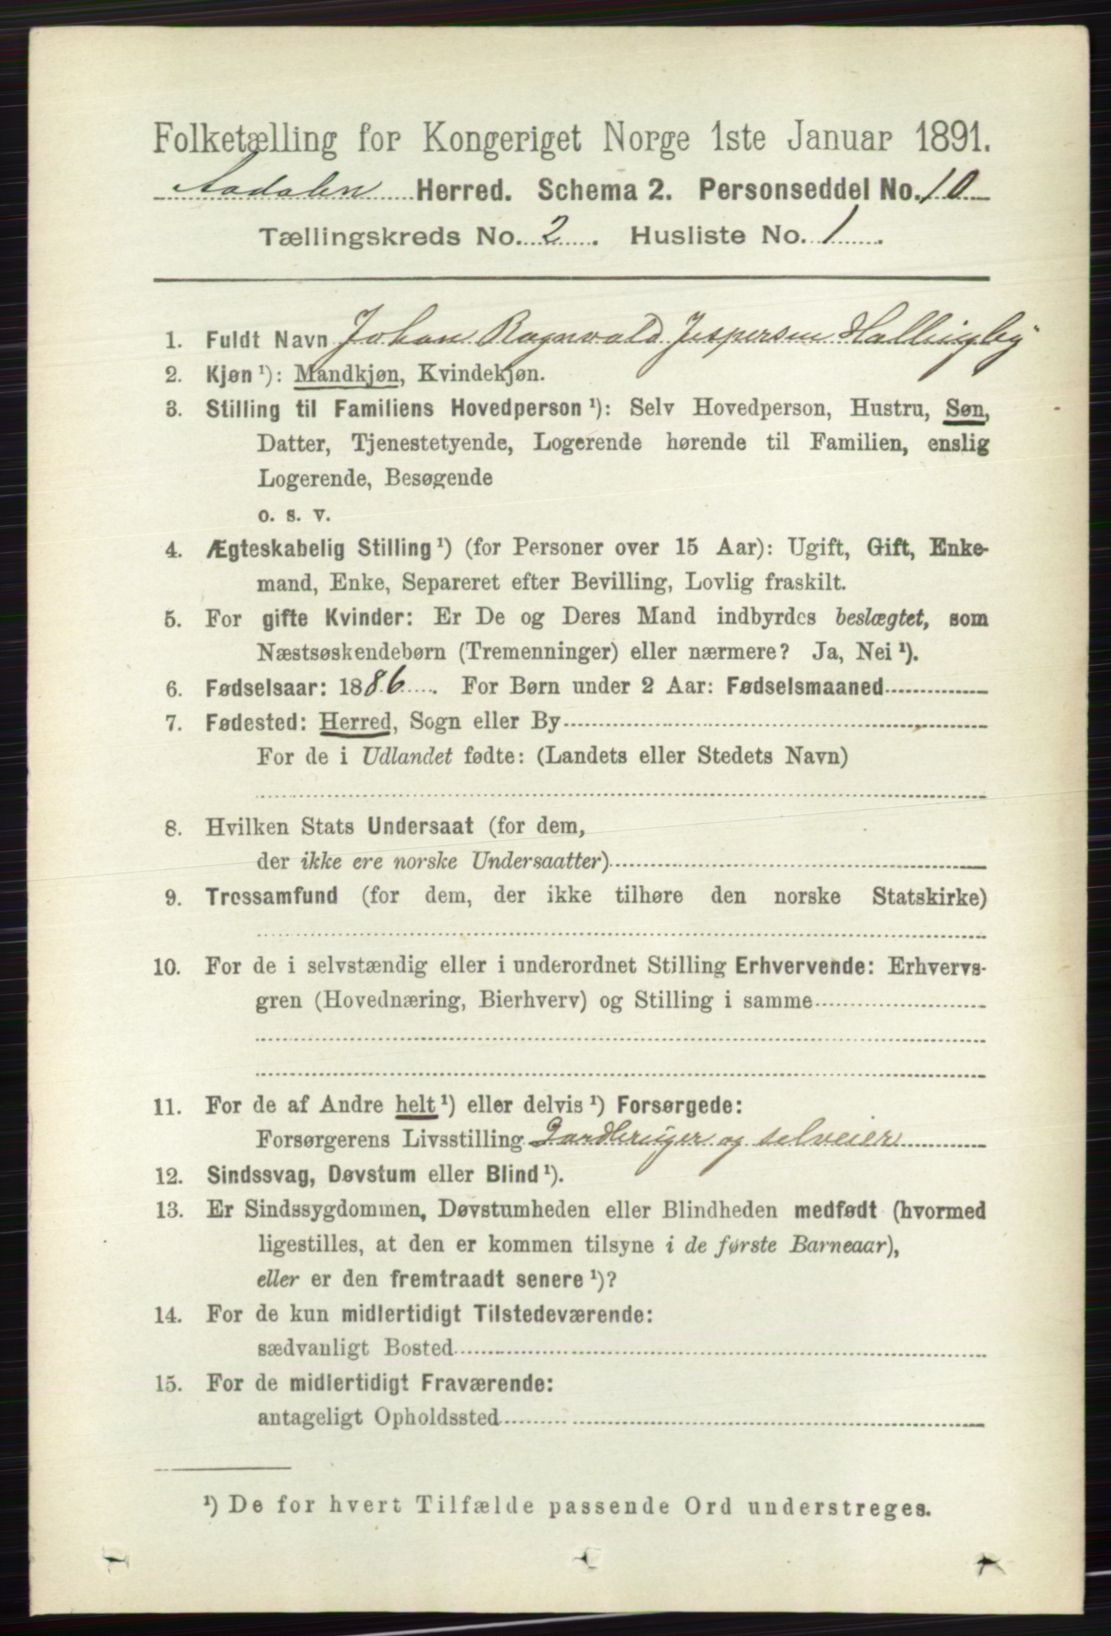 Folketælling for Kongeriget Norge 1ste Januar 1891.
Aadalen Herred. Schema 2. Personseddel No. 10
Tællingskreds No. 2. Husliste No. 1.
1. Fuldt Navn Johan Ragnvald Jespersen Hallingby
2. Kjøn ¹): Mandkjøn, Kvindekjøn.
3. Stilling til Familiens Hovedperson ¹): Selv Hovedperson, Hustru, Søn,
Datter, Tjenestetyende, Logerende hørende til Familien, enslig
Logerende, Besøgende
o. s. v.
4. Ægteskabelig Stilling ¹) (for Personer over 15 Aar): Ugift, Gift, Enke-
mand, Enke, Separeret efter Bevilling, Lovlig fraskilt.
5. For gifte Kvinder: Er De og Deres Mand indbyrdes beslægtet, som
Næstsøskendebørn (Tremenninger) eller nærmere? Ja, Nei ¹).
6. Fødselsaar: 1886. For Børn under 2 Aar: Fødselsmaaned
7. Fødested: Herred, Sogn eller By
For de i Udlandet fødte: (Landets eller Stedets Navn)
8. Hvilken Stats Undersaat (for dem,
der ikke ere norske Undersaatter)
9. Trossamfund (for dem, der ikke tilhøre den norske Statskirke)
10. For de i selvstændig eller i underordnet Stilling Erhvervende: Erhvervs-
gren (Hovednæring, Bierhverv) og Stilling i samme
11. For de af Andre helt ¹) eller delvis ¹) Forsørgede:
Forsørgerens Livsstilling Gardbruger og selveier
12. Sindssvag, Døvstum eller Blind ¹).
13. Er Sindssygdommen, Døvstumheden eller Blindheden medfødt (hvormed
ligestilles, at den er kommen tilsyne i de første Barneaar),
eller er den fremtraadt senere ¹)?
14. For de kun midlertidigt Tilstedeværende:
sædvanligt Bosted
15. For de midlertidigt Fraværende:
antageligt Opholdssted
¹) De for hvert Tilfælde passende Ord understreges.